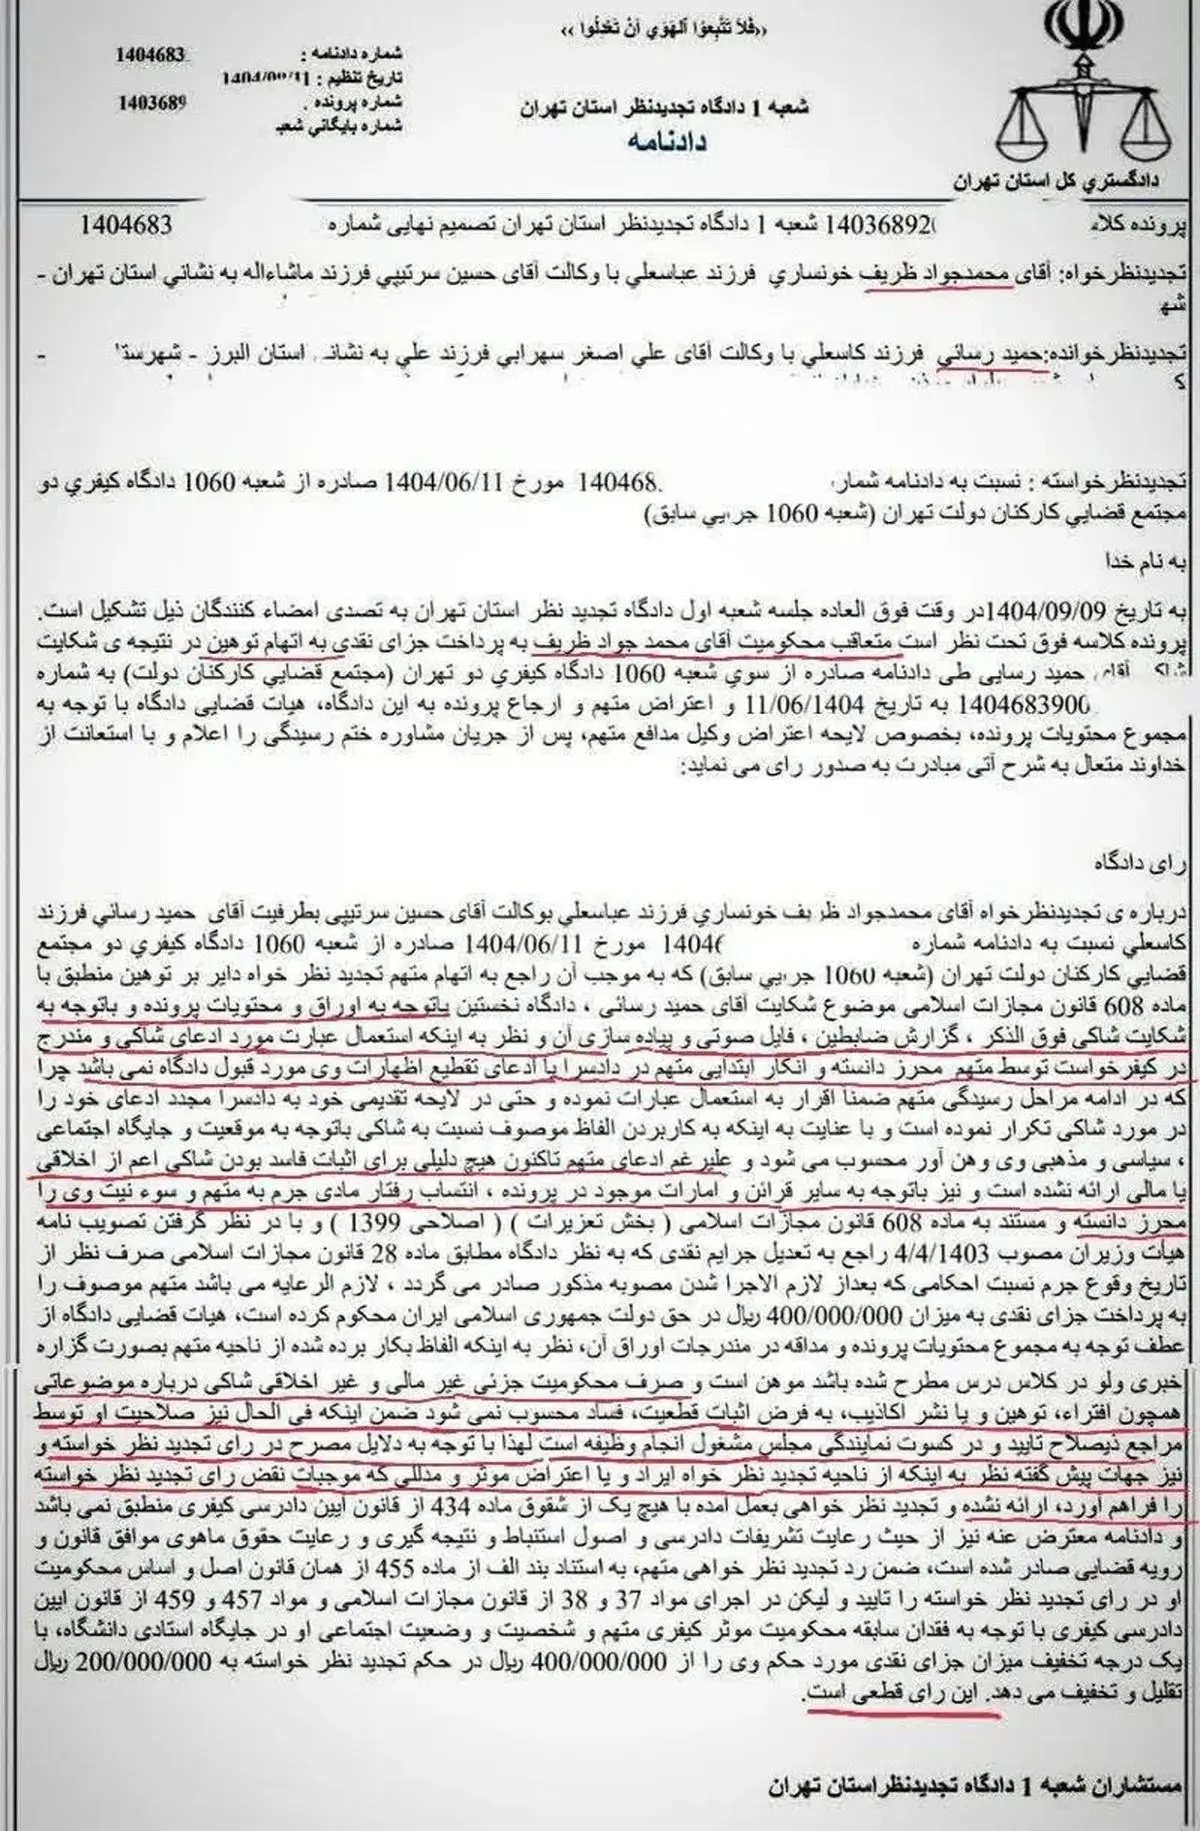 «فَلاَ تَتَّبِعُوا الْهَوَي أَنْ تَعْدِلُوا»
شماره دادنامه : 1404683
تاریخ تنظیم :
شماره پرونده : 1403689
شماره بایگاني شعبه
شعبه 1 دادگاه تجدیدنظر استان تهران
دادنامه
دادگستري کل استان تهران
پرونده کلاسه 14036892 شعبه 1 دادگاه تجدیدنظر استان تهران تصمیم نهایی شماره 1404683
تجدیدنظرخواه: آقای محمدجواد ظریف خونساري فرزند عباسعلي با وکالت آقای حسین سرتیپي فرزند ماشاءاله به نشاني استان تهران -
شه
تجدیدنظرخوانده:حمید رسائي فرزند کاسعلي با وکالت آقای علي اصغر سهرابي فرزند علي به نشاني استان البرز - شهرستا -
تجدیدنظرخواسته : نسبت به دادنامه شماره 140468 مورخ 1404/06/11 صادره از شعبه 1060 دادگاه کیفري دو
مجتمع قضایي کارکنان دولت تهران (شعبه 1060 جزایي سابق)
به نام خدا
به تاریخ 1404/09/09در وقت فوق العاده جلسه شعبه اول دادگاه تجدید نظر استان تهران به تصدی امضاء کنندگان ذیل تشکیل است.
پرونده کلاسه فوق تحت نظر است متعاقب محکومیت آقای محمد جواد ظریف به پرداخت جزای نقدی به اتهام توهین در نتیجه ی شکایت
شاکی آقای حمید رسایی طی دادنامه صادره از سوي شعبه 1060 دادگاه کیفري دو تهران (مجتمع قضایي کارکنان دولت) به شماره
1404683900 به تاریخ 11/06/1404 و اعتراض متهم و ارجاع پرونده به این دادگاه، هیات قضایی دادگاه با توجه به
مجموع محتویات پرونده، بخصوص لایحه اعتراض وکیل مدافع متهم، پس از جریان مشاوره ختم رسیدگی را اعلام و با استعانت از
خداوند متعال به شرح آتی مبادرت به صدور رای می نماید:
رای دادگاه
درباره ی تجدیدنظرخواه آقای محمدجواد ظریف خونساري فرزند عباسعلي بوکالت آقای حسین سرتیپی بطرفیت آقای حمید رسائي فرزند
کاسعلي نسبت به دادنامه شماره 1404 مورخ 1404/06/11 صادره از شعبه 1060 دادگاه کیفري دو مجتمع
قضایي کارکنان دولت تهران (شعبه 1060 جزایي سابق) که به موجب آن راجع به اتهام متهم تجدید نظر خواه دایر بر توهین منطبق با
ماده 608 قانون مجازات اسلامی موضوع شکایت آقای حمید رسائی ، دادگاه نخستین باتوجه به اوراق و محتویات پرونده و باتوجه به
شکایت شاکی فوق الذکر ، گزارش ضابطین ، فایل صوتی و پیاده سازی آن و نظر به اینکه استعمال عبارت مورد ادعای شاکی و مندرج
در کیفرخواست توسط متهم محرز دانسته و انکار ابتدایی متهم در دادسرا با ادعای تقطیع اظهارات وی مورد قبول دادگاه نمی باشد چرا
که در ادامه مراحل رسیدگی متهم ضمنا اقرار به استعمال عبارات نموده و حتی در لایحه تقدیمی خود به دادسرا مجدد ادعای خود را
در مورد شاکی تکرار نموده است و با عنایت به اینکه به کاربردن الفاظ موصوف نسبت به شاکی باتوجه به موقعیت و جایگاه اجتماعی
، سیاسی و مذهبی وی وهن آور محسوب می شود و علیرغم ادعای متهم تاکنون هیچ دلیلی برای اثبات فاسد بودن شاکی اعم از اخلاقی
یا مالی ارائه نشده است و نیز باتوجه به سایر قرائن و امارات موجود در پرونده ، انتساب رفتار مادی جرم به متهم و سوء نیت وی را
محرز دانسته و مستند به ماده 608 قانون مجازات اسلامی ( بخش تعزیرات ) ( اصلاحی 1399 ) و با در نظر گرفتن تصویب نامه
هیات وزیران مصوب 4/4/1403 راجع به تعدیل جرایم نقدی که به نظر دادگاه مطابق ماده 28 قانون مجازات اسلامی صرف نظر از
تاریخ وقوع جرم نسبت احکامی که بعداز لازم الاجرا شدن مصوبه مذکور صادر می گردد ، لازم الرعایه می باشد متهم موصوف را
به پرداخت جزای نقدی به میزان 400/000/000 ریال در حق دولت جمهوری اسلامی ایران محکوم کرده است، هیات قضایی دادگاه از
عطف توجه به مجموع محتویات پرونده و مداقه در مندرجات اوراق آن، نظر به اینکه الفاظ بکار برده شده از ناحیه متهم بصورت گزاره
خبری ولو در کلاس درس مطرح شده باشد موهن است و صرف محکومیت جزئی غیر مالی و غیر اخلاقی شاکی درباره موضوعاتی
همچون افتراء، توهین و یا نشر اکاذیب، به فرض اثبات قطعیت، فساد محسوب نمی شود ضمن اینکه فی الحال نیز صلاحیت او توسط
مراجع ذیصلاح تایید و در کسوت نمایندگی مجلس مشغول انجام وظیفه است لهذا با توجه به دلایل مصرح در رای تجدید نظر خواسته و
نیز جهات پیش گفته نظر به اینکه از ناحیه تجدید نظر خواه ایراد و یا اعتراض موثر و مدللی که موجبات نقض رای تجدید نظر خواسته
را فراهم آورد، ارائه نشده و تجدید نظر خواهی بعمل آمده با هیچ یک از شقوق ماده 434 از قانون آیین دادرسی کیفری منطبق نمی باشد
و دادنامه معترض عنه نیز از حیث رعایت تشریفات دادرسی و اصول استنباط و نتیجه گیری و رعایت حقوق ماهوی موافق قانون و
رویه قضایی صادر شده است، ضمن رد تجدید نظر خواهی متهم، به استناد بند الف از ماده 455 از همان قانون اصل و اساس محکومیت
او در رای تجدید نظر خواسته را تایید و لیکن در اجرای مواد 37 و 38 از قانون مجازات اسلامی و مواد 457 و 459 از قانون آیین
دادرسی کیفری با توجه به فقدان سابقه محکومیت موثر کیفری متهم و شخصیت و وضعیت اجتماعی او در جایگاه استادی دانشگاه، با
یک درجه تخفیف میزان جزای نقدی مورد حکم وی را از 400/000/000 ریال در حکم تجدید نظر خواسته به 200/000/000 ریال
تقلیل و تخفیف می دهد. این رای قطعی است.
مستشاران شعبه 1 دادگاه تجدیدنظراستان تهران